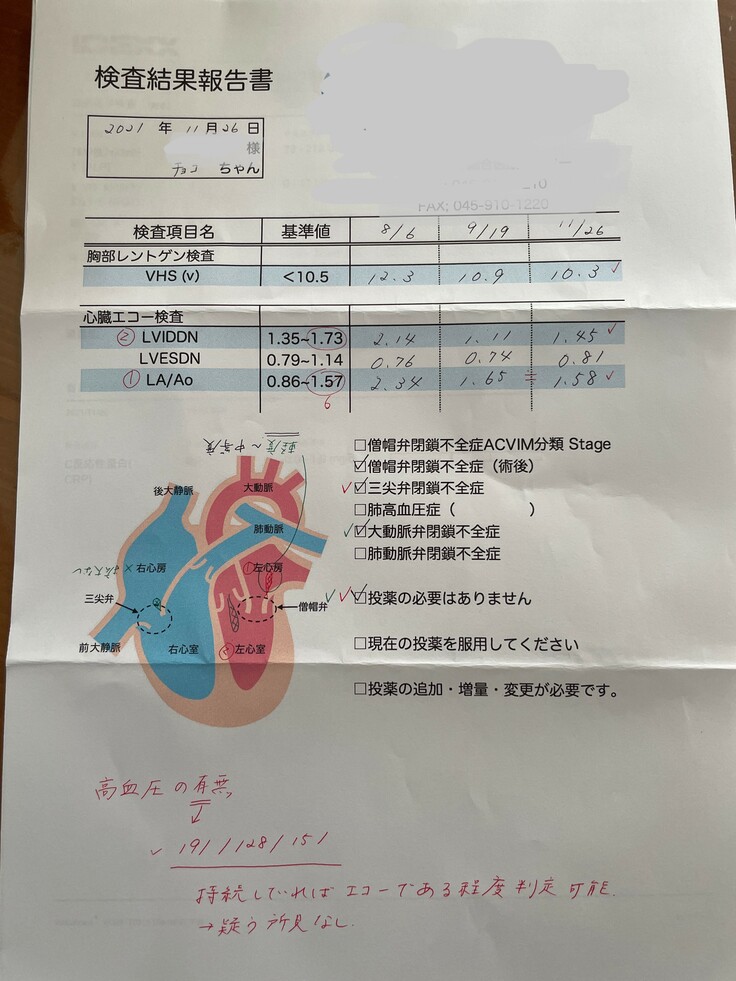 検査結果報告書
2021 年 11 月 26 日
様
チョコ ちゃん
FAX; 045-910-1220
検査項目名 基準値 8/6 9/19 11/26
胸部レントゲン検査
VHS (v) <10.5 12.3 10.9 10.3 ✓
心臓エコー検査
② LVIDDN 1.35~1.73 2.14 1.11 1.45 ✓
LVESDN 0.79~1.14 0.76 0.74 0.81
① LA/Ao 0.86~1.57 2.34 1.65 ≒ 1.58 ✓
6
軽度 ~ 中等度
後大静脈
大動脈
肺動脈
× 右心房
① 左心房
三尖弁
僧帽弁
前大静脈
右心室
② 左心室
□僧帽弁閉鎖不全症ACVIM分類 Stage
☑僧帽弁閉鎖不全症（術後）
✓☑三尖弁閉鎖不全症
□肺高血圧症（ ）
✓☑大動脈弁閉鎖不全症
□肺動脈弁閉鎖不全症
✓✓☑投薬の必要はありません
□現在の投薬を服用してください
□投薬の追加・増量・変更が必要です。
高血圧の有無
↓
✓ 191/128/151
持続していればエコーである程度判定可能.
→疑う所見なし.